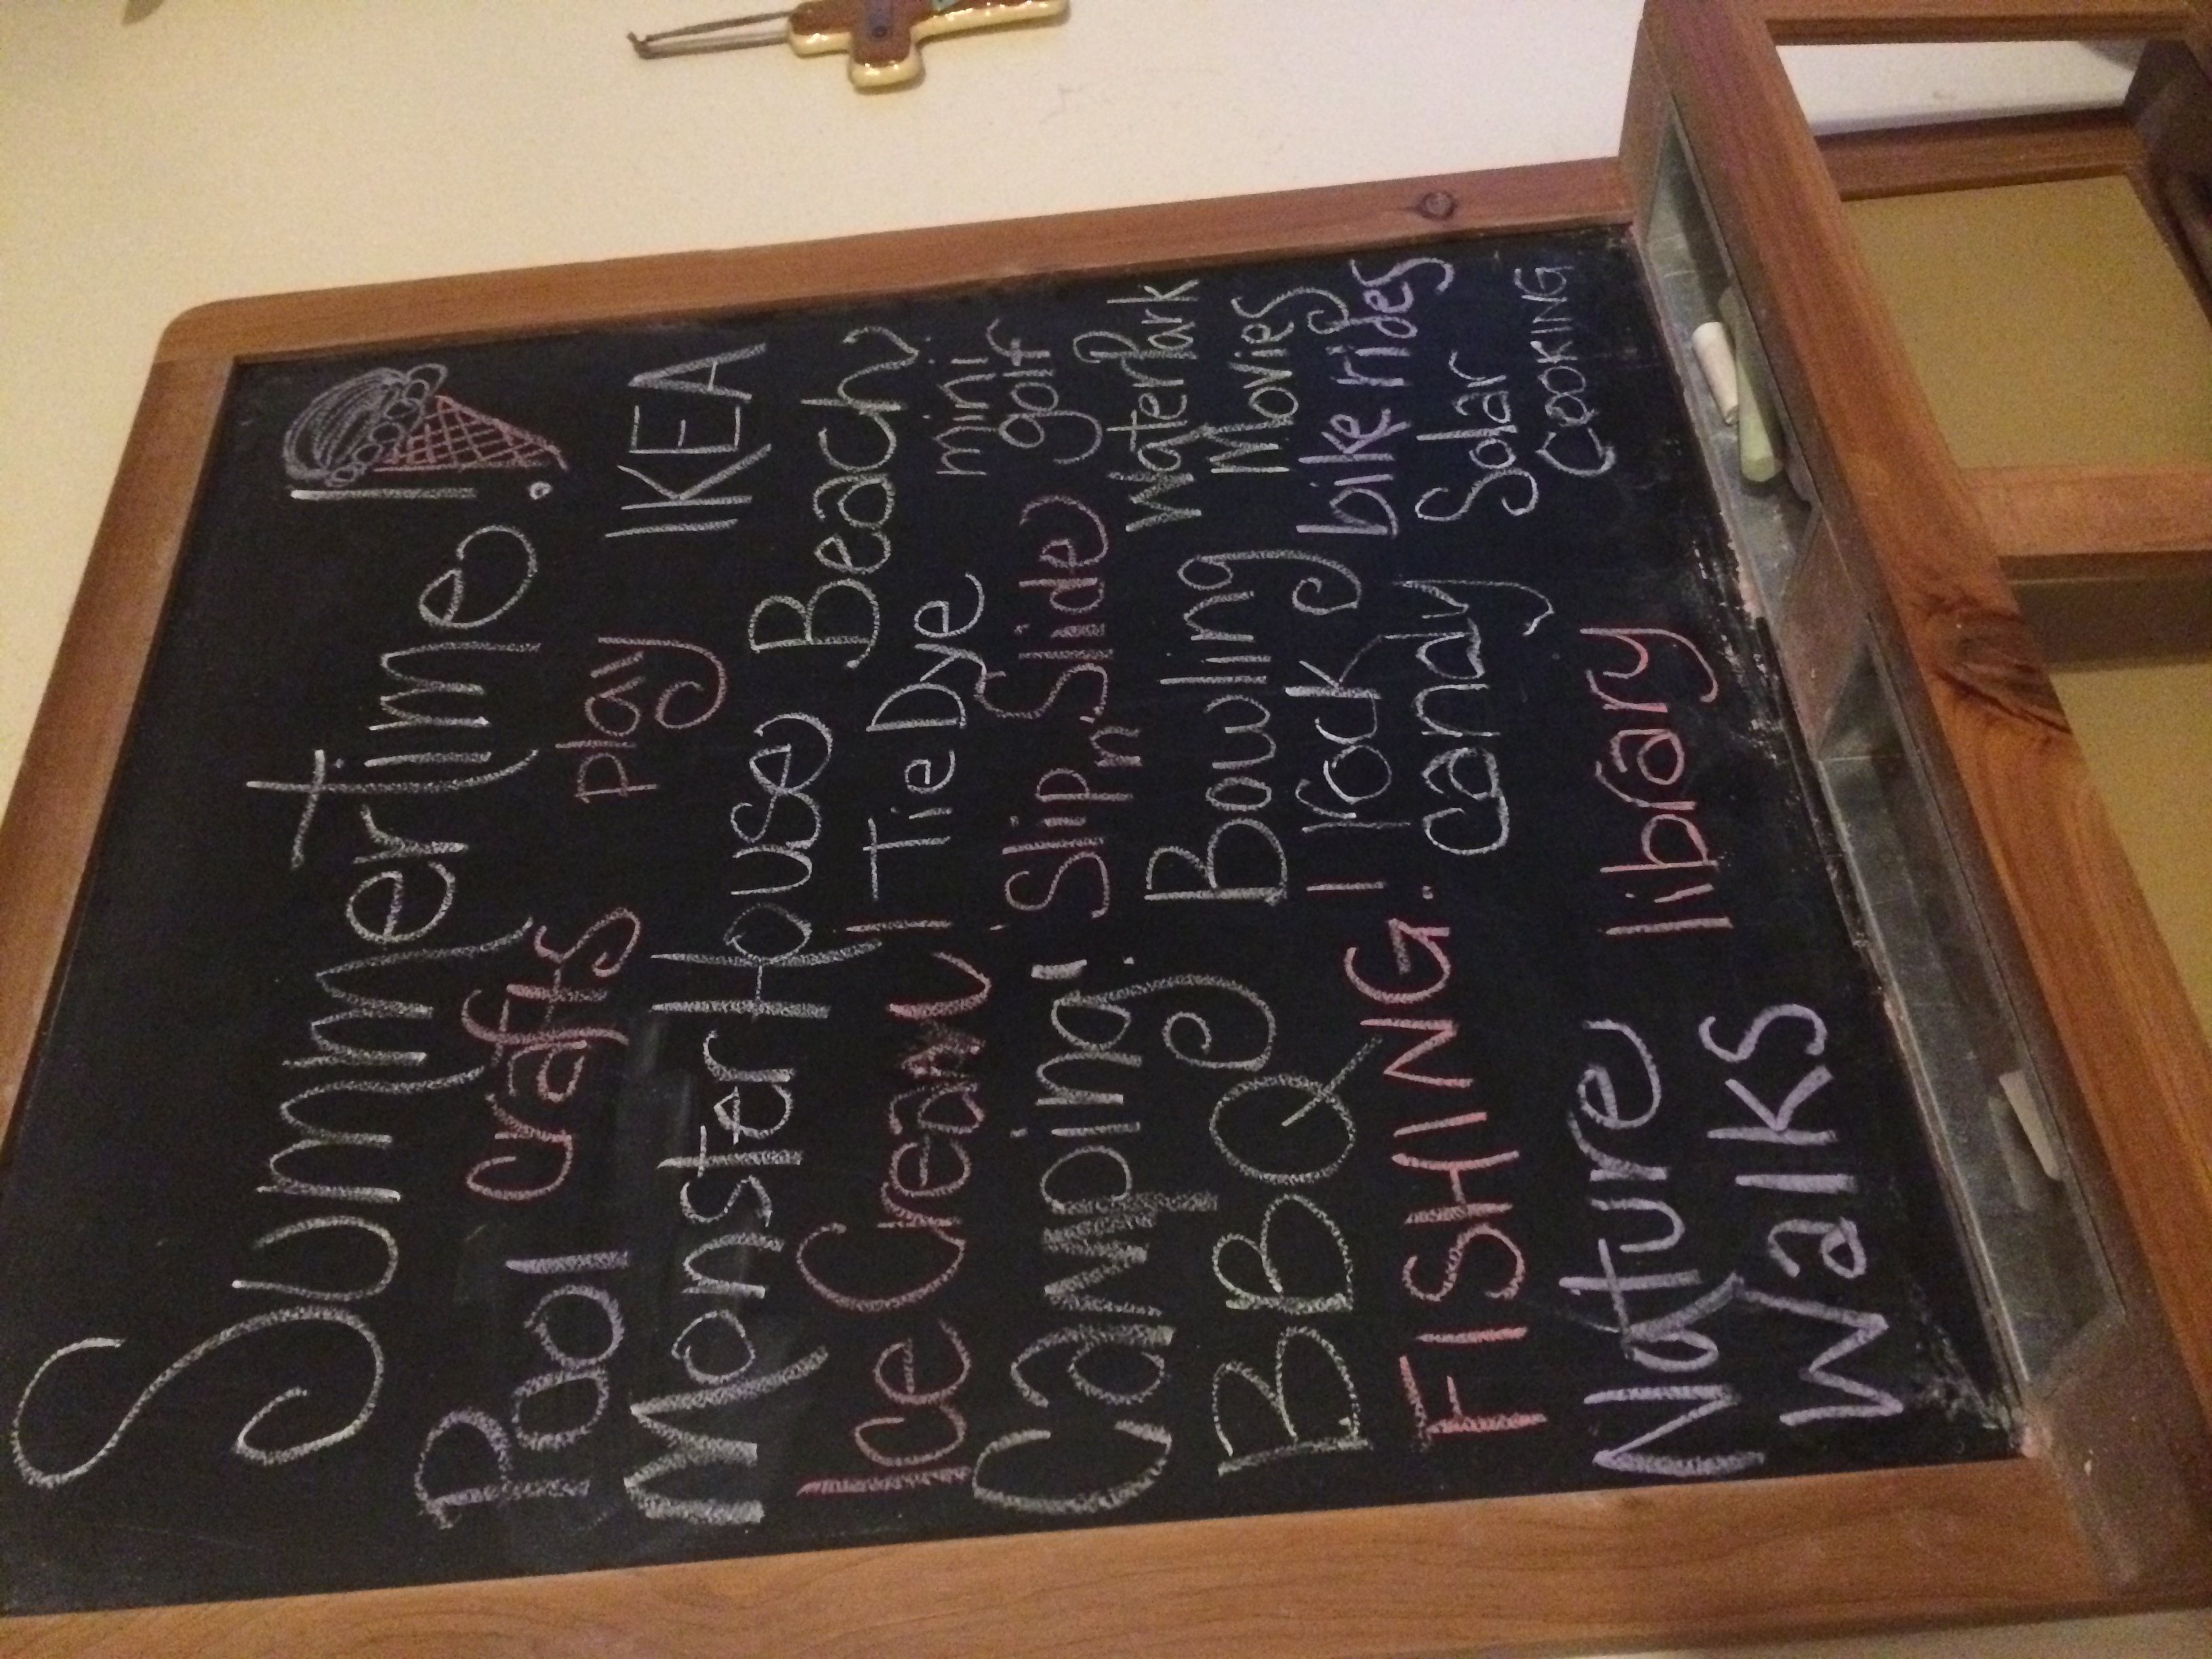 Summer Time!
Pool crafts play IKEA
Monster House Beach
Ice Cream Tie Dye mini
golf
Camping! Slip n' Slide Waterpark
BBQ Bowling Movies
FISHING. rock bike rides
candy Solar
Nature library COOKING
Walks